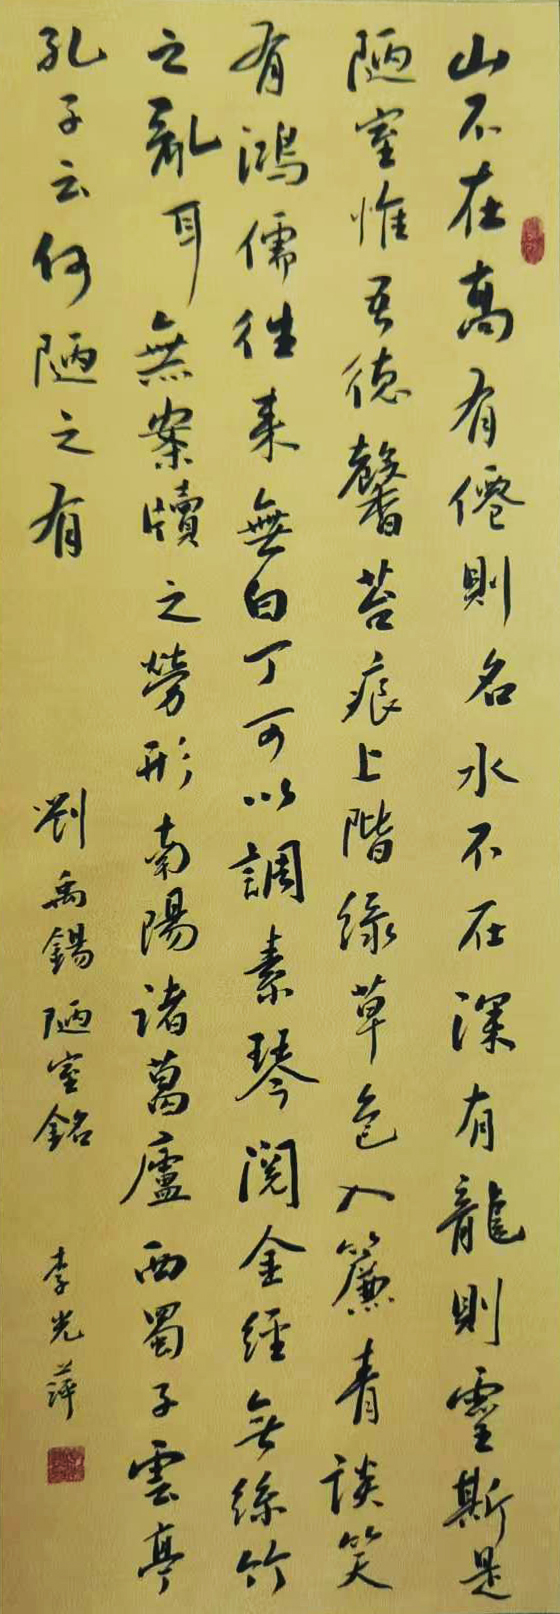 山不在高有僊則名水不在深有龍則靈斯是
陋室惟吾德馨苔痕上階綠草色入簾青談笑
有鴻儒往来無白丁可以調素琴閱金經無絲竹
之亂耳無案牘之勞形南陽諸葛廬西蜀子雲亭
孔子云何陋之有
劉禹錫陋室銘
李光萍